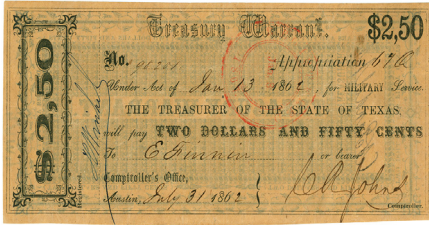 Treasury Warrant.
$2,50
$2,50
No.
Appropriation 67 Q
Under Act of Jan 13 1862, for MILITARY Service
THE TREASURER OF THE STATE OF TEXAS,
will pay TWO DOLLARS AND FIFTY CENTS
To E Finnin or bearer
Comptroller's Office,
Austin, July 31 1862
C R Johns
Comptroller.
Registered.